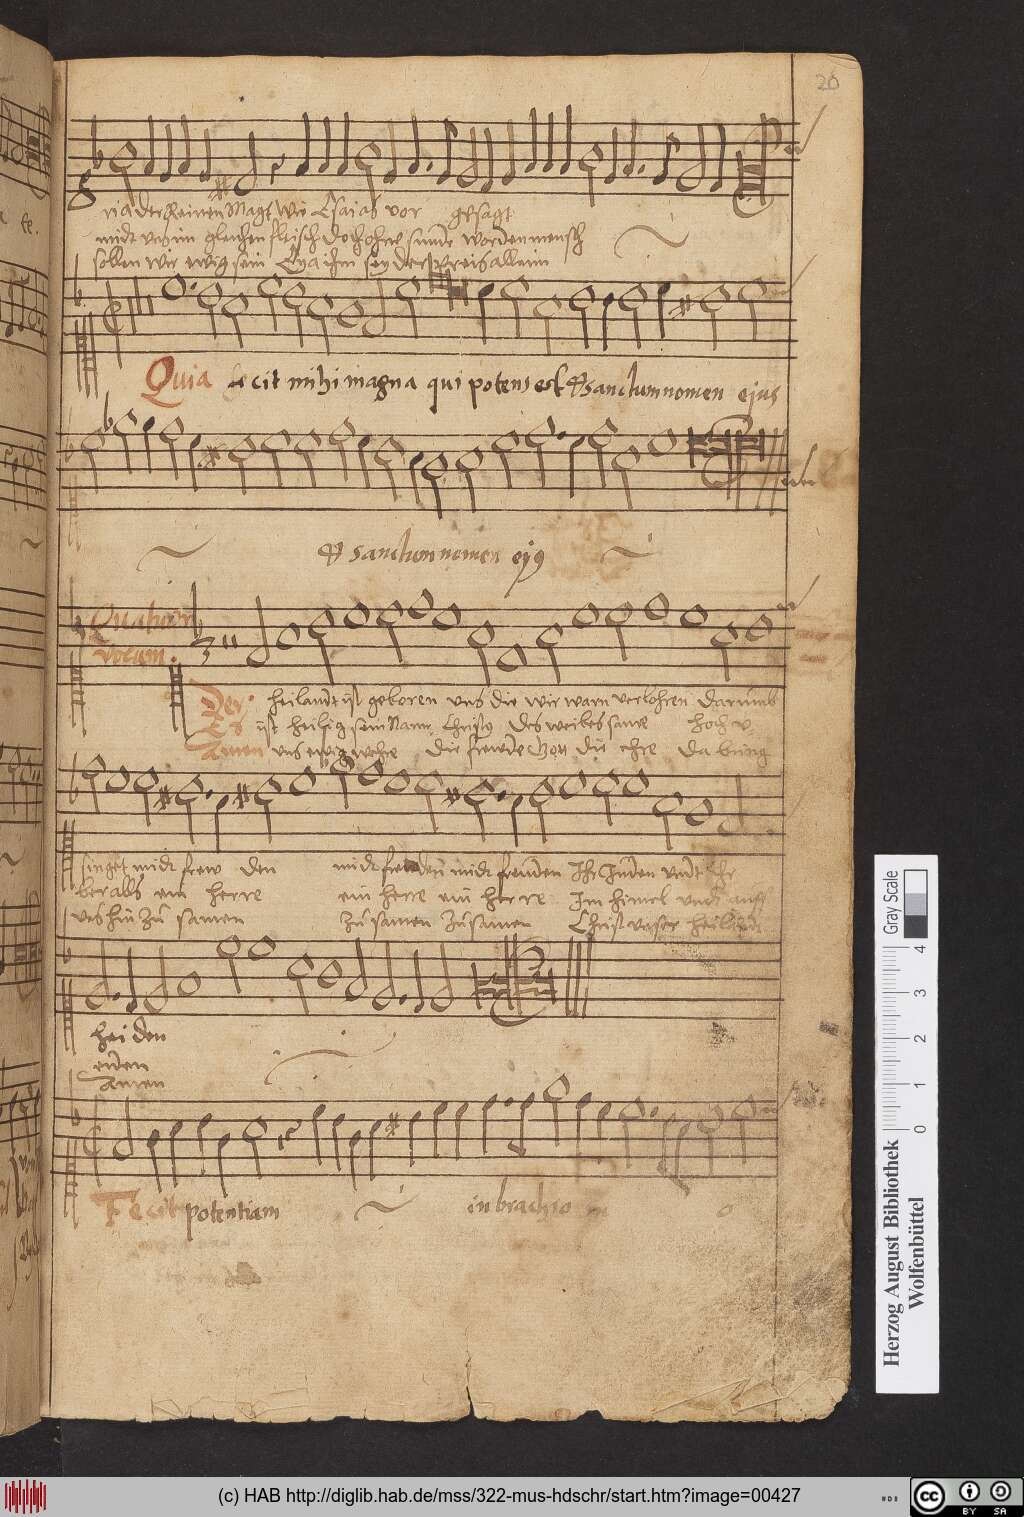 20
ria der Reinen Magt wie Esaias vor gesagt
midt uns im gleichen fleisch doch ohne sunde worden mensch
sollen wir ewig sein Eya ihm sey der Preis allein
Quia fecit mihi magna qui potens est Et sanctum nomen ejus
Et sanctum nomen ejus
Quatuor
vocum.
Der heilandt ist geboren uns die wir warn verlohren darumb
Es ist heilig sein Nam Christus des weibes same hoch u-
Amen uns ewig wehre die frewde von du ehre da bring
singet midt frew den midt freuden midt freuden Ihr Juden undt Ihr
beralls ein herre ein herre ein herre Im himel undt auff
uns hin zu samen zu samen zu samen Christ unser heilandt
heiden
erden
Amen
Fecit potentiam in brachio
Gray Scale
0 1 2 3 4
Herzog August Bibliothek
Wolfenbüttel
(c) HAB http://diglib.hab.de/mss/322-mus-hdschr/start.htm?image=00427
cc BY SA